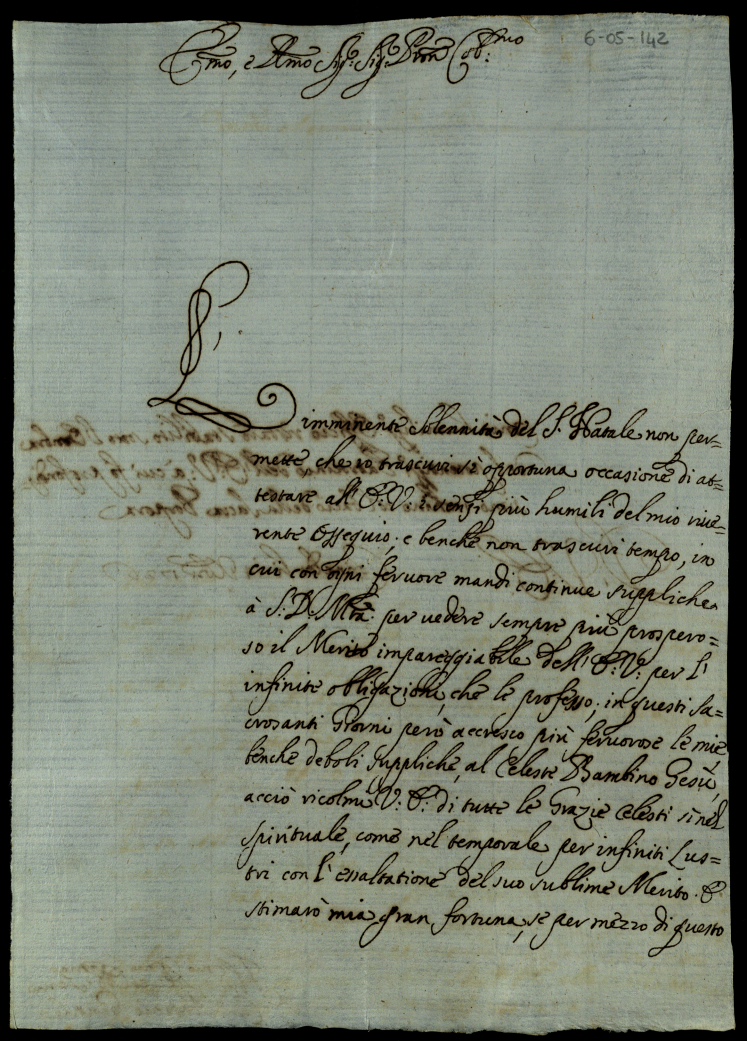 6-05-142
Emo, e Rmo Sig: Sig: Pron Col:mo
L'imminente solennità del S. Natale non per=
mette che io trascuri sì opportuna occasione di at=
testare all' E: V: i sensi più humili del mio riue=
rente ossequio; e benche non trascuri tempo, in
cui con ogni feruore mandi continue suppliche
à S: D: Mtà: per vedere sempre più prospero=
so il Merito impareggiabile dell' E: V: per l'
infinite obligazioni, che le professo; in questi Sa=
crosanti Giorni però accresco più feruorose le mie,
benche deboli suppliche, al Celeste Bambino Gesù,
acciò ricolmi V: E: di tutte le Grazie Celesti sì nel
spirituale, come nel temporale per infiniti Lus=
tri con l'essaltatione del suo sublime Merito. E
stimarò mia gran fortuna, se per mezzo di questo